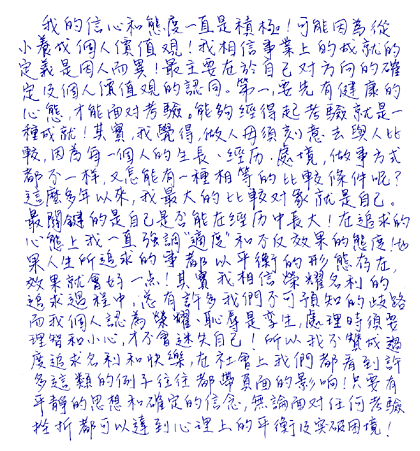 我的信心和態度一直是積極！可能因為從
小養成個人價值觀！我相信事業上的成就的
定義是因人而異！最主要在於自己对方向的確
定及個人價值觀的認同。第一，要先有健康的
心態，才能面对考驗。能夠經得起考驗就是一
種成就！其實，我覺得，做人毋須刻意去與人比
較，因為每一個人的生長、經历、處境，做事方式
都不一样，又怎能有一種相等的比較條件呢？
這麼多年以來，我最大的比較对象就是自己。
最關鍵的是自己是否能在經历中長大！在追求的
心態上我一直強調"適度"和不反效果的態度！如
果人生所追求的事都以平衡的形態存在，
效果就會好一点！其實我相信榮耀名利的
追求過程中，还有許多我們不可預知的歧路
而我個人認為榮耀、恥辱是孪生，處理時須要
理智和小心，才不會迷失自己！所以我不赞成過
度追求名利和快樂，在社會上我們都看到許
多這類的例子往往都帶負面的影响！只要有
平靜的思想和確定的信念，無論面对任何考驗
挫折都可以達到心理上的平衡及突破困境！